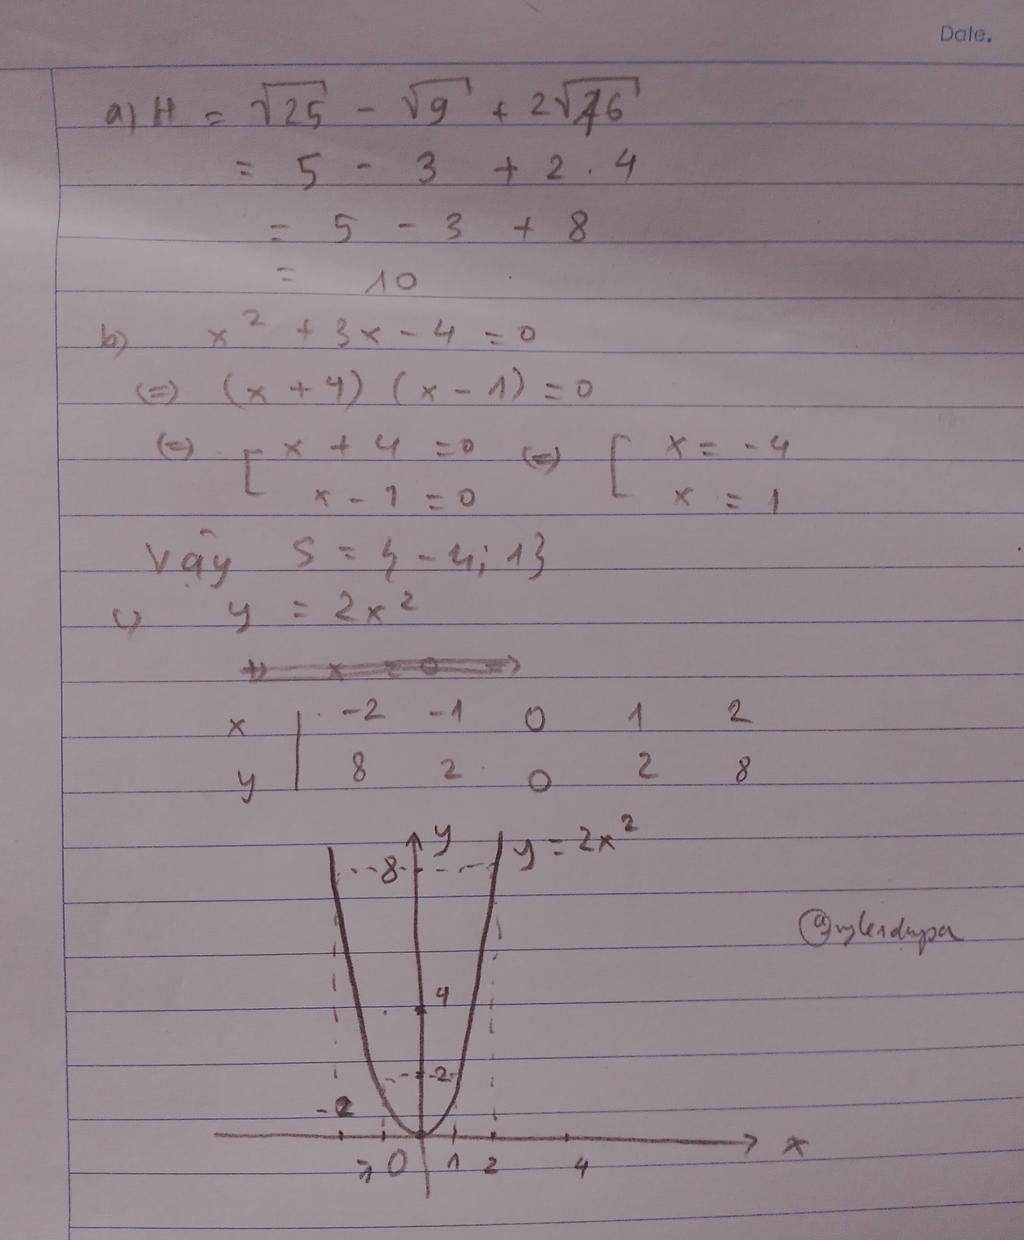 Date.
a) H = √25 - √9 + 2√16
= 5 - 3 + 2 . 4
= 5 - 3 + 8
= 10
b) x² + 3x - 4 = 0
(=) (x + 4) (x - 1) = 0
(=) [ x + 4 = 0 (=) [ x = -4
x - 1 = 0 x = 1
Vậy S = { -4; 1}
c) y = 2x²
x | -2 -1 0 1 2
y | 8 2 0 2 8
y
y = 2x²
8
4
2
-2
x
0 1 2 4